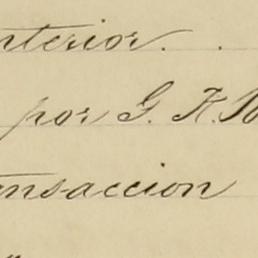 nterior.
por G. K.
nsaccion